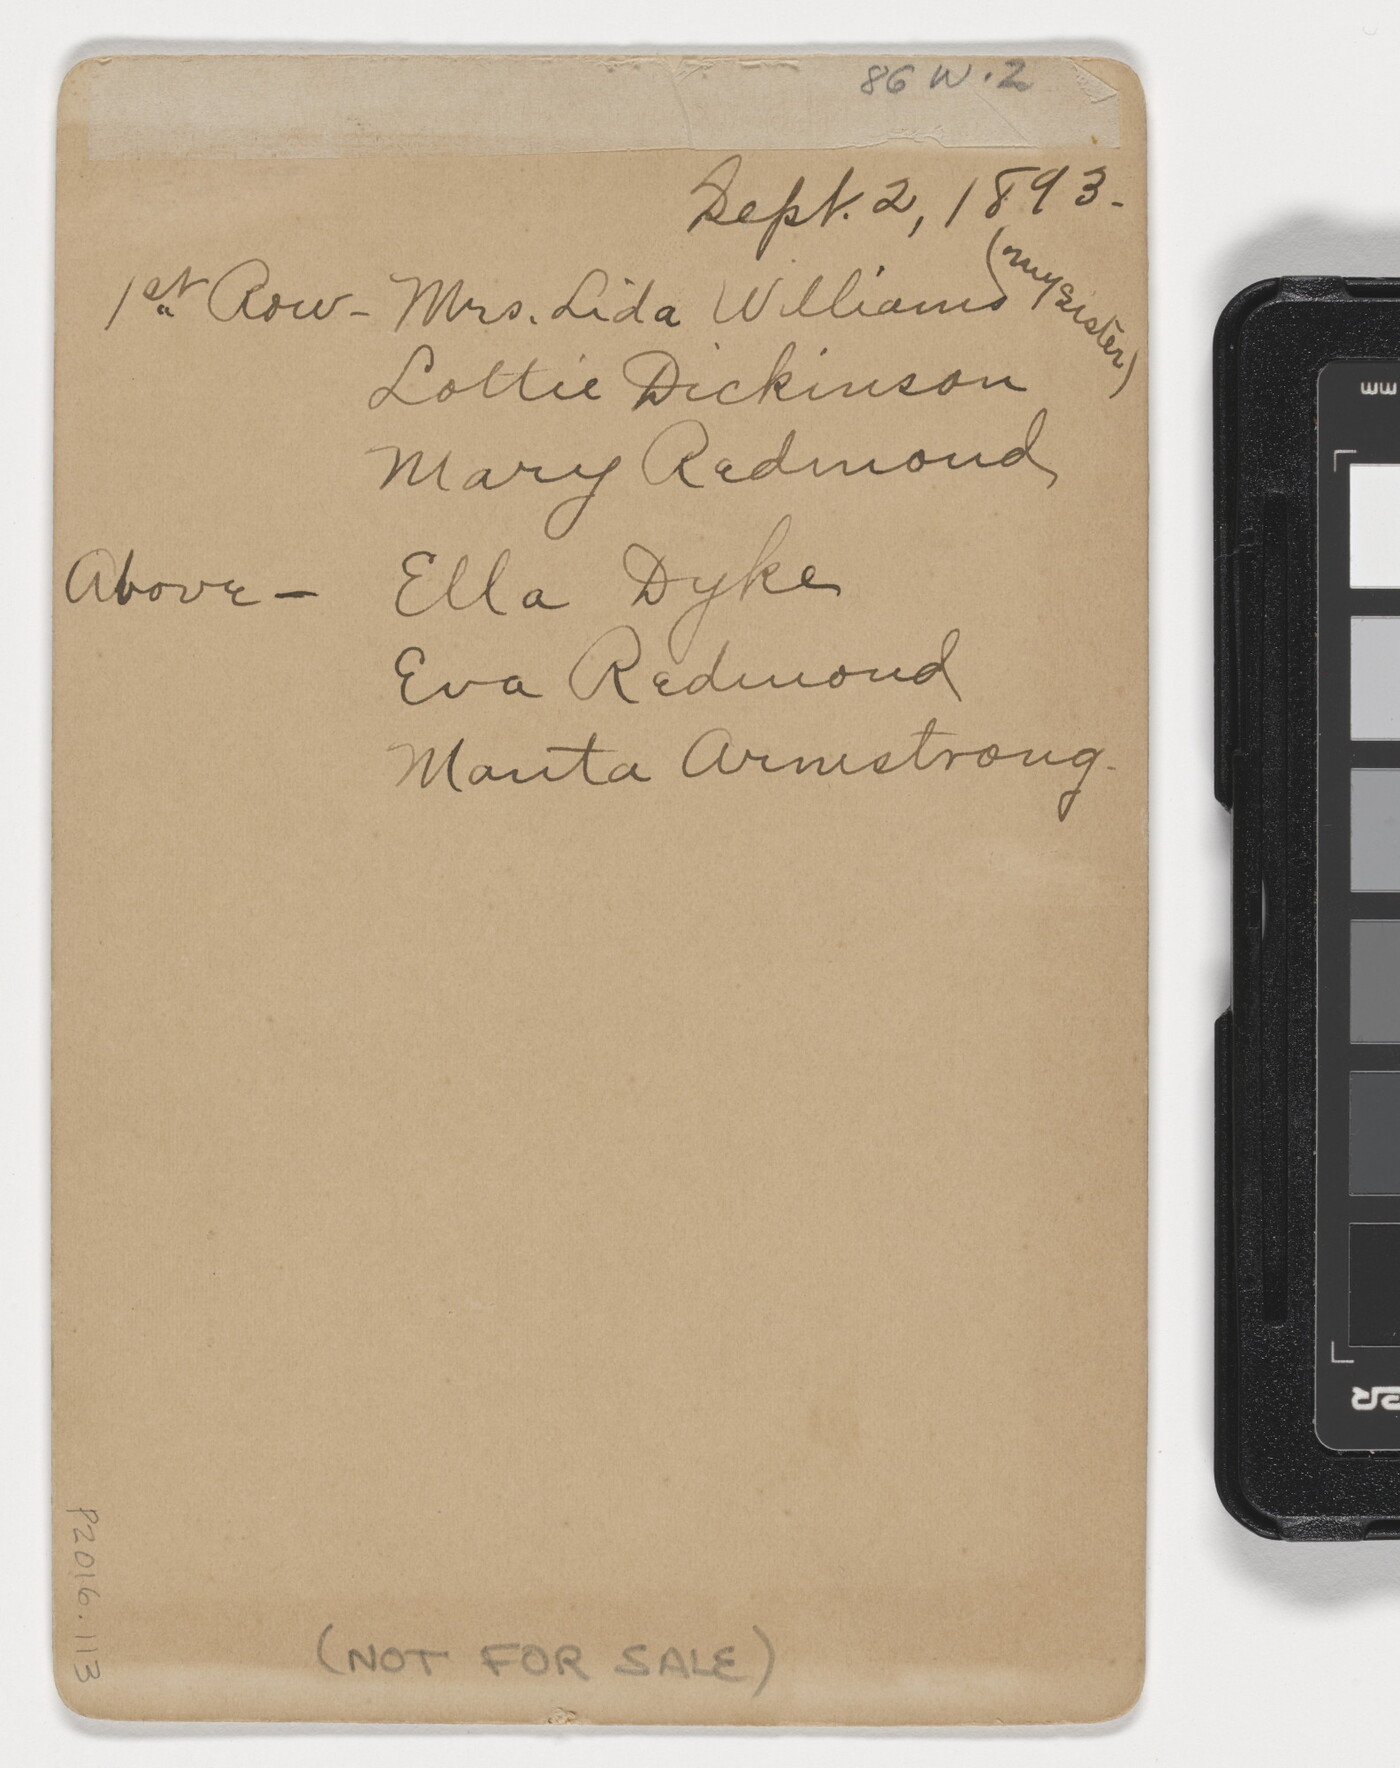 86 W.2
Sept. 2, 1893.
1st Row - Mrs. Lida Williams (my sister)
Lottie Dickinson
Mary Redmond
Above - Ella Dyke
Eva Redmond
Manta Armstrong.
(NOT FOR SALE)
P2016.113
mm